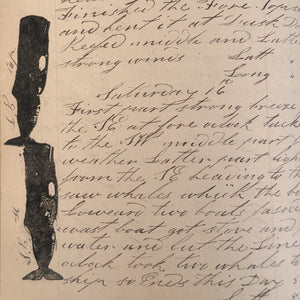 Finished the Fore Tops
and bent it at Dusk D
Keefed middle and Latter
strong winds Latt
Long
Saturday 16th
First part strong breeze
the SE at fore oclock tuck
to the SW middle part
weather Latter part ligh
from the SE heading to th
saw whales whiçh the bo
Loweard two boats fasne
wast boat got stove and
water and cut the Line
oclock took two whales to
ship so Ends this Day